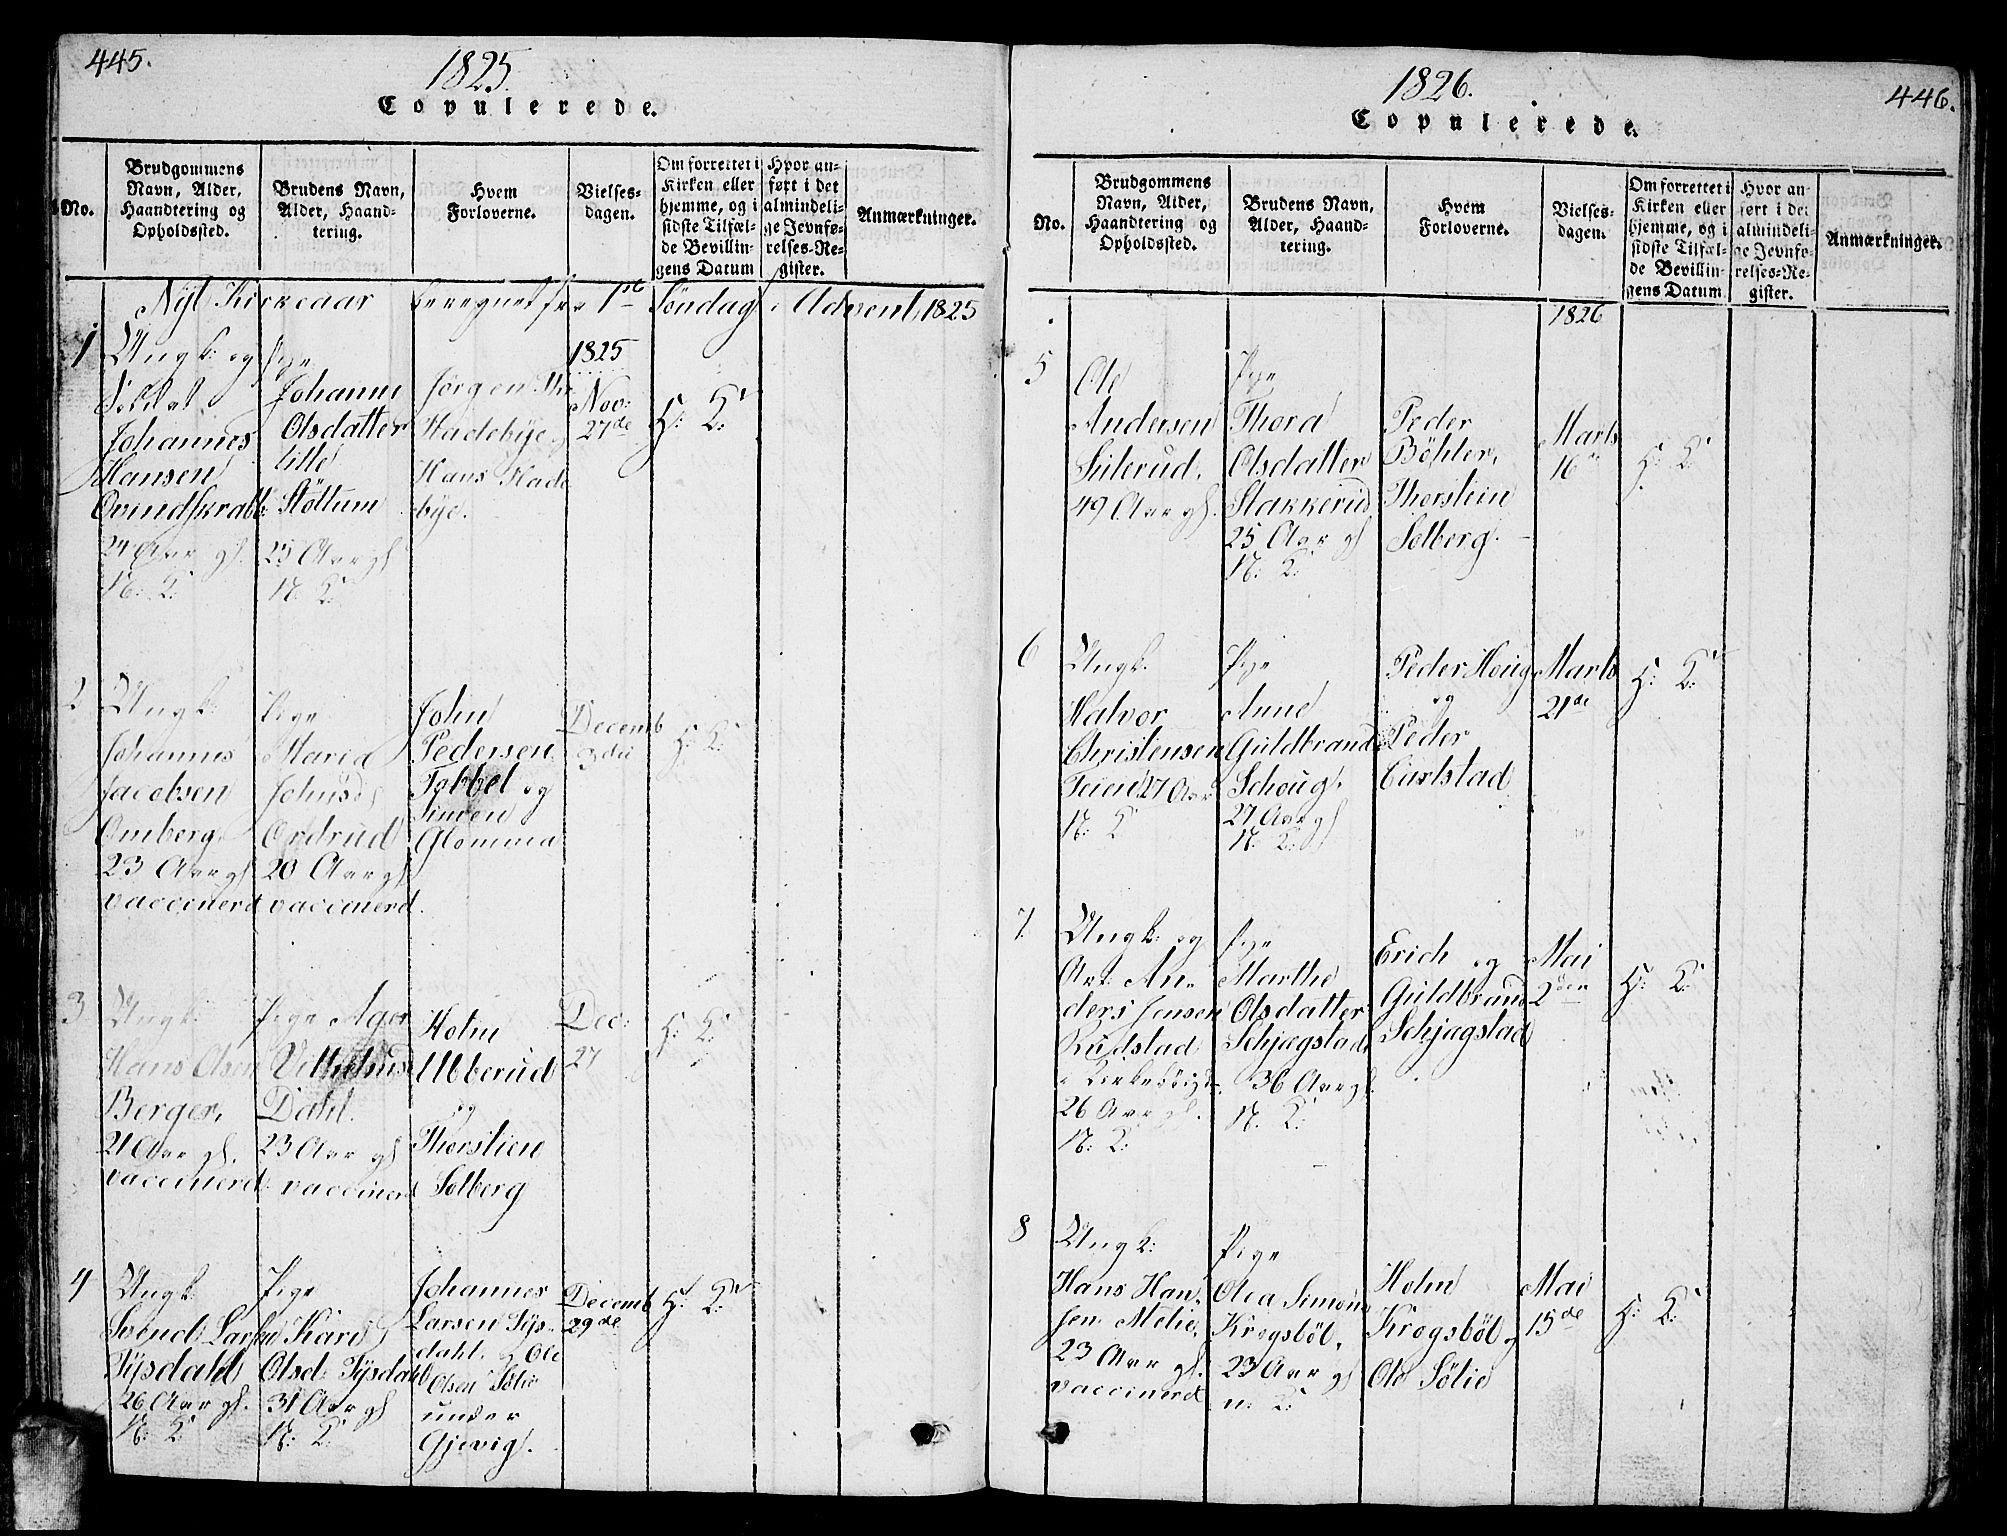 445.
1825.
Copulerede.
No.
Brudgommens Navn, Alder, Haandtering og Opholdssted.
Brudens Navn, Alder, Haandtering.
Hvem Forloverne.
Vielsesdagen.
Om forrettet i Kirken eller hjemme, og i sidste Tilfælde Bevillingens Datum
Hvor anført i det almindelige Jevnførelses-Register.
Anmærkninger.
Nyt Kirkeaar beregnet fra 1ste Søndag i Advent 1825
1
Ungk: og
Soldat
Johannes
Hansen
24 Aar gl.
N: K:
Pige
Johanne
Olsdatter
lille
Støttum
25 Aar gl
N: K:
Jørgen
Hadebye og
Hans Hade
bye.
1825
Nov:
27de
H: K:
2
Ungk:
Johannes
Jacobsen
Omberg
23 Aar gl
vaccinerd
Pige
Maria
Johnsd
Ordrud
20 Aar gl
vaccinerd.
John
Pedersen
og
Simen
Glomma
Decemb
3die
H: K:
3
Ungk:
Hans Olsen
Berger,
21 Aar gl.
vaccinerd
Pige
Dahl.
23 Aar gl
vaccinerd
Holm
Ulberud
og
Thorstien
Solberg
Dec:
27
H: K:
4
Ungk:
Svend Larsen
Tysdahl
26 Aar gl.
N: K:
Pige
Kari
Olsd: Tysdahl
31 Aar gl
N: K:
Johannes
Larsen Tys-
dahl. og Ole
Olsen Sølie
under
Gjevig.
Decemb
29de
H: K:
1826.
446.
Copulerede.
No.
Brudgommens Navn, Alder, Haandtering og Opholdssted.
Brudens Navn, Alder, Haandtering.
Hvem Forloverne.
Vielsesdagen.
Om forrettet i Kirken eller hjemme, og i sidste Tilfælde Bevillingens Datum
Hvor anført i det almindelige Jevnførelses-Register.
Anmærkninger.
1826
5
Ole
Andersen
49 Aar gl.
Pige
Thora
Olsdatter
Stakkerud
25 Aar gl
N: K:
Peder
Böhler,
Thorstien
Solberg.
Marts
16
H: K:
6
Ungk.
Halvor
Christensen
Teien 27 Aar
N: K
Pige
Anne
Guldbrands
Schoug.
27 Aar gl
N: K:
Peder Houg
og
Peder
Carlstad
Marts
21de
H: K:
7.
Ungk: og
An-
ders Jensen
Rudstad
26 Aar gl.
N: K:
Pige
Marthe
Olsdatter
Schjægstad
36 Aar gl.
N: K:
Erich og
Guldbrand
Schjagstad
Mai
2den
H: K:
8
Ungk:
Hans Han-
sen Melie
23 Aar gl.
vaccinerd
Pige
Olea Simons
Krogsböl.
23 Aar gl
n: K:
Holm
Krogsböl og
Ole Sølie
Mai
15de
H: K: